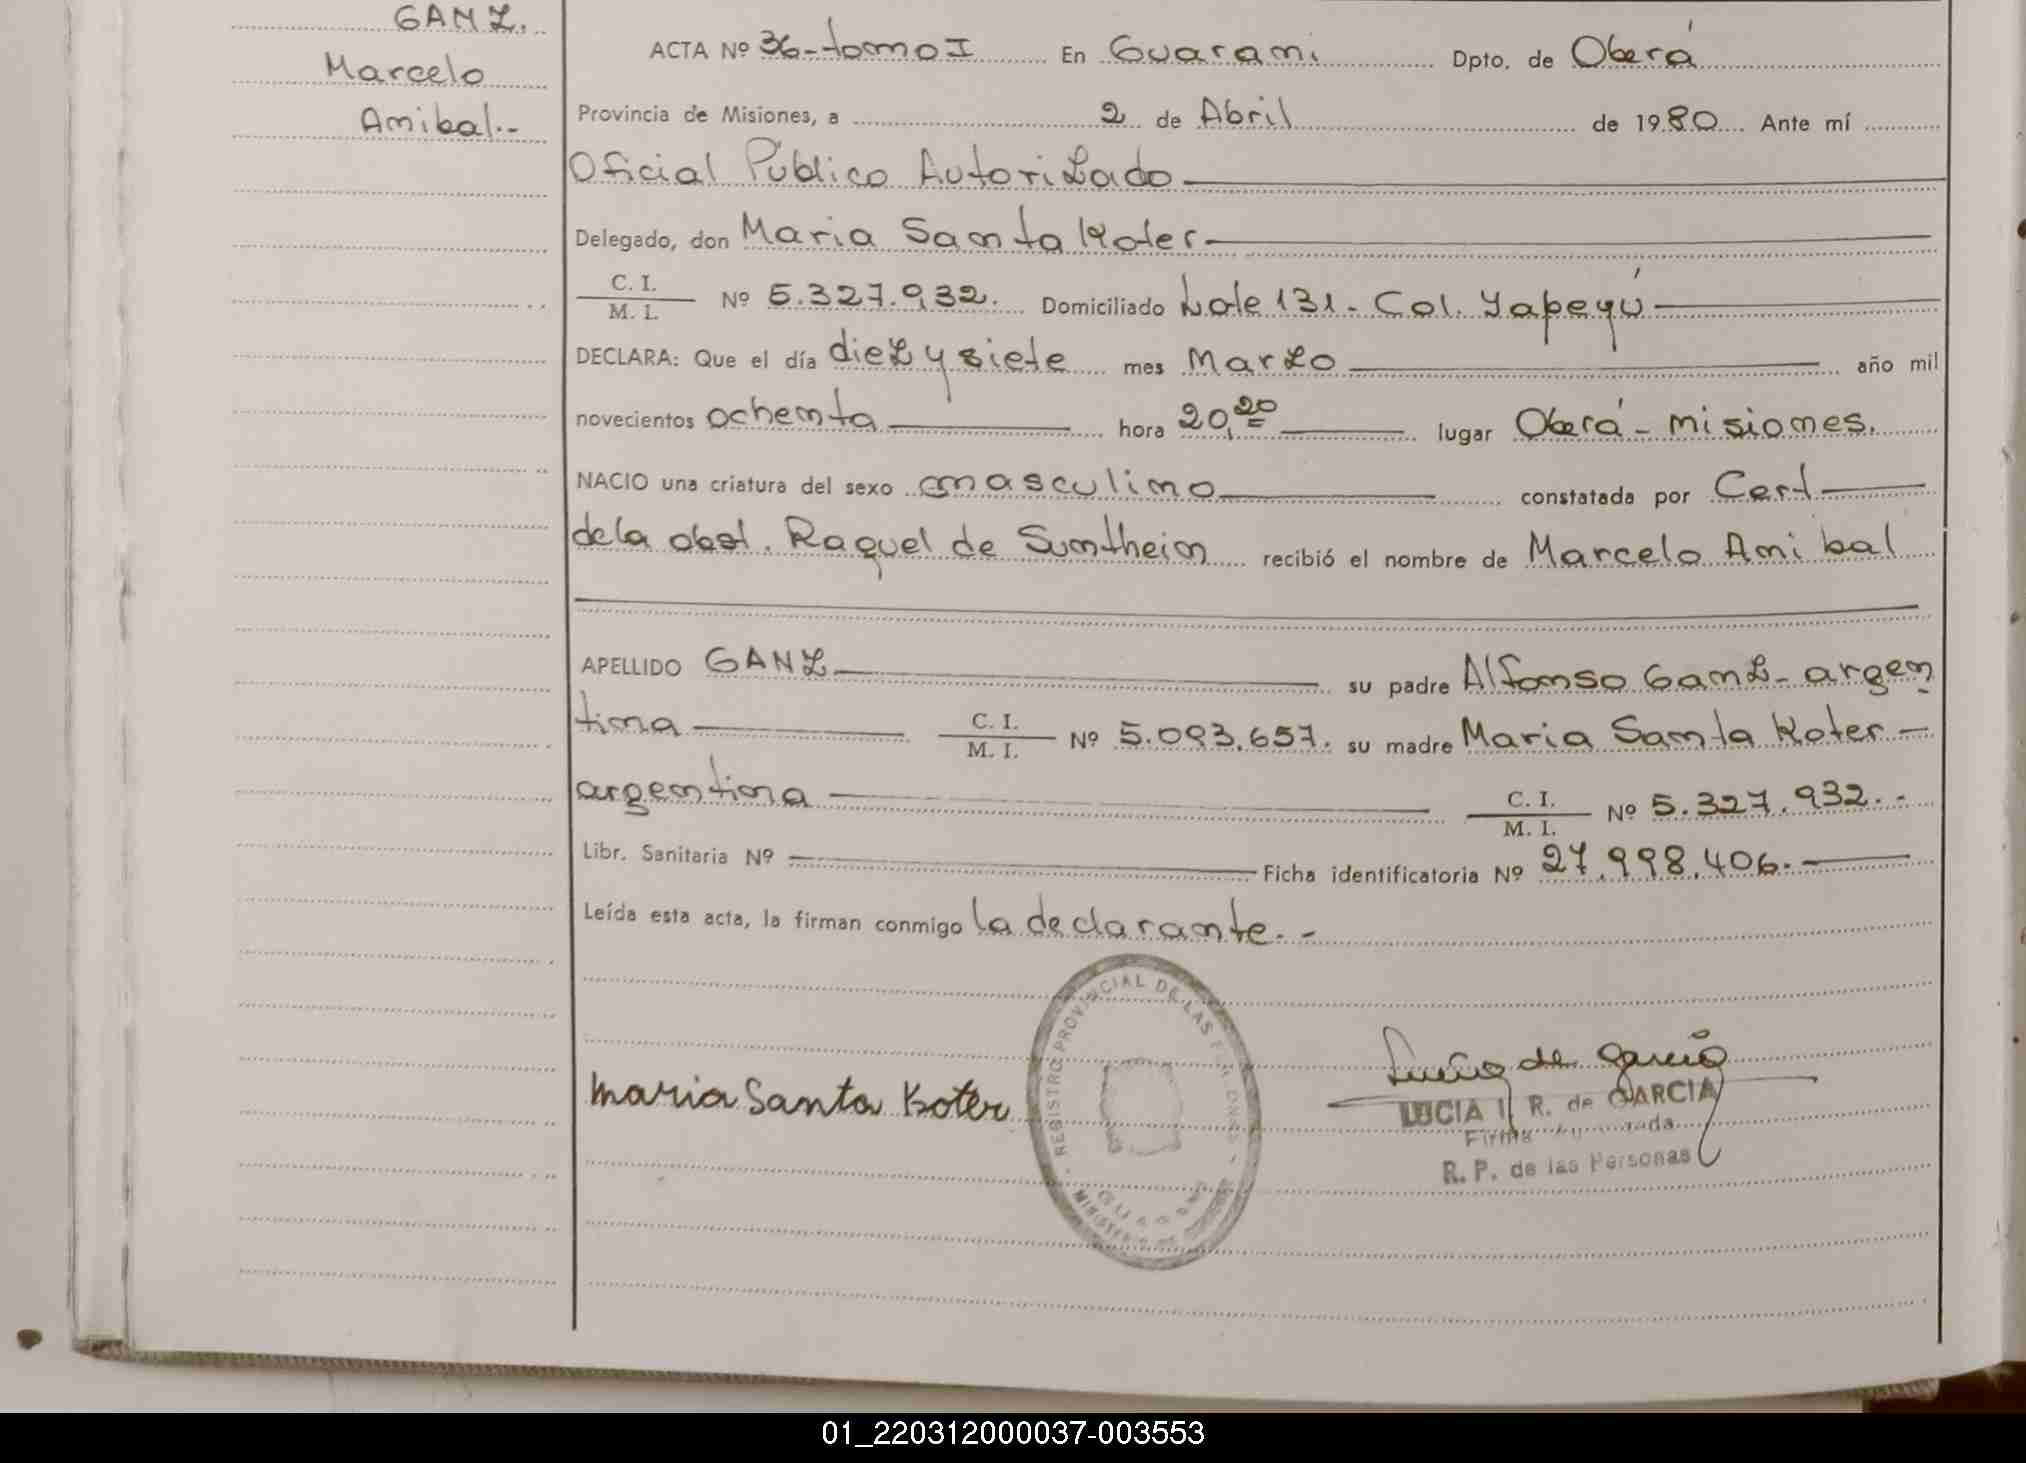 GANZ.
Marcelo
Anibal.-
ACTA Nº 36-tomo I En Guarani Dpto. de Oberá
Provincia de Misiones, a 2 de Abril de 1980 Ante mí
Oficial Público Autorizado
Delegado, don Maria Santa Koter
C. I.
M. I. Nº 5.327.932. Domiciliado Lote 131 - Col. Yapeyú
DECLARA: Que el día diez y siete mes Marzo año mil
novecientos ochenta hora 20,20 lugar Oberá - misiones.
NACIO una criatura del sexo masculino constatada por Cert
de la obst. Raquel de Suntheim recibió el nombre de Marcelo Anibal
APELLIDO GANZ su padre Alfonso Ganz - argen
tina C. I.
M. I. Nº 5.093.657. su madre Maria Santa Koter -
argentina C. I.
M. I. Nº 5.327.932.-
Libr. Sanitaria Nº Ficha identificatoria Nº 27.998.406.
Leída esta acta, la firman conmigo la declarante.-
REGISTRO PROVINCIAL DE LAS PERSONAS
MINISTERIO DE GOBIERNO
maria Santa Koter
LUCIA I. R. de GARCIA
Firma Autorizada
R. P. de las Personas
01_220312000037-003553